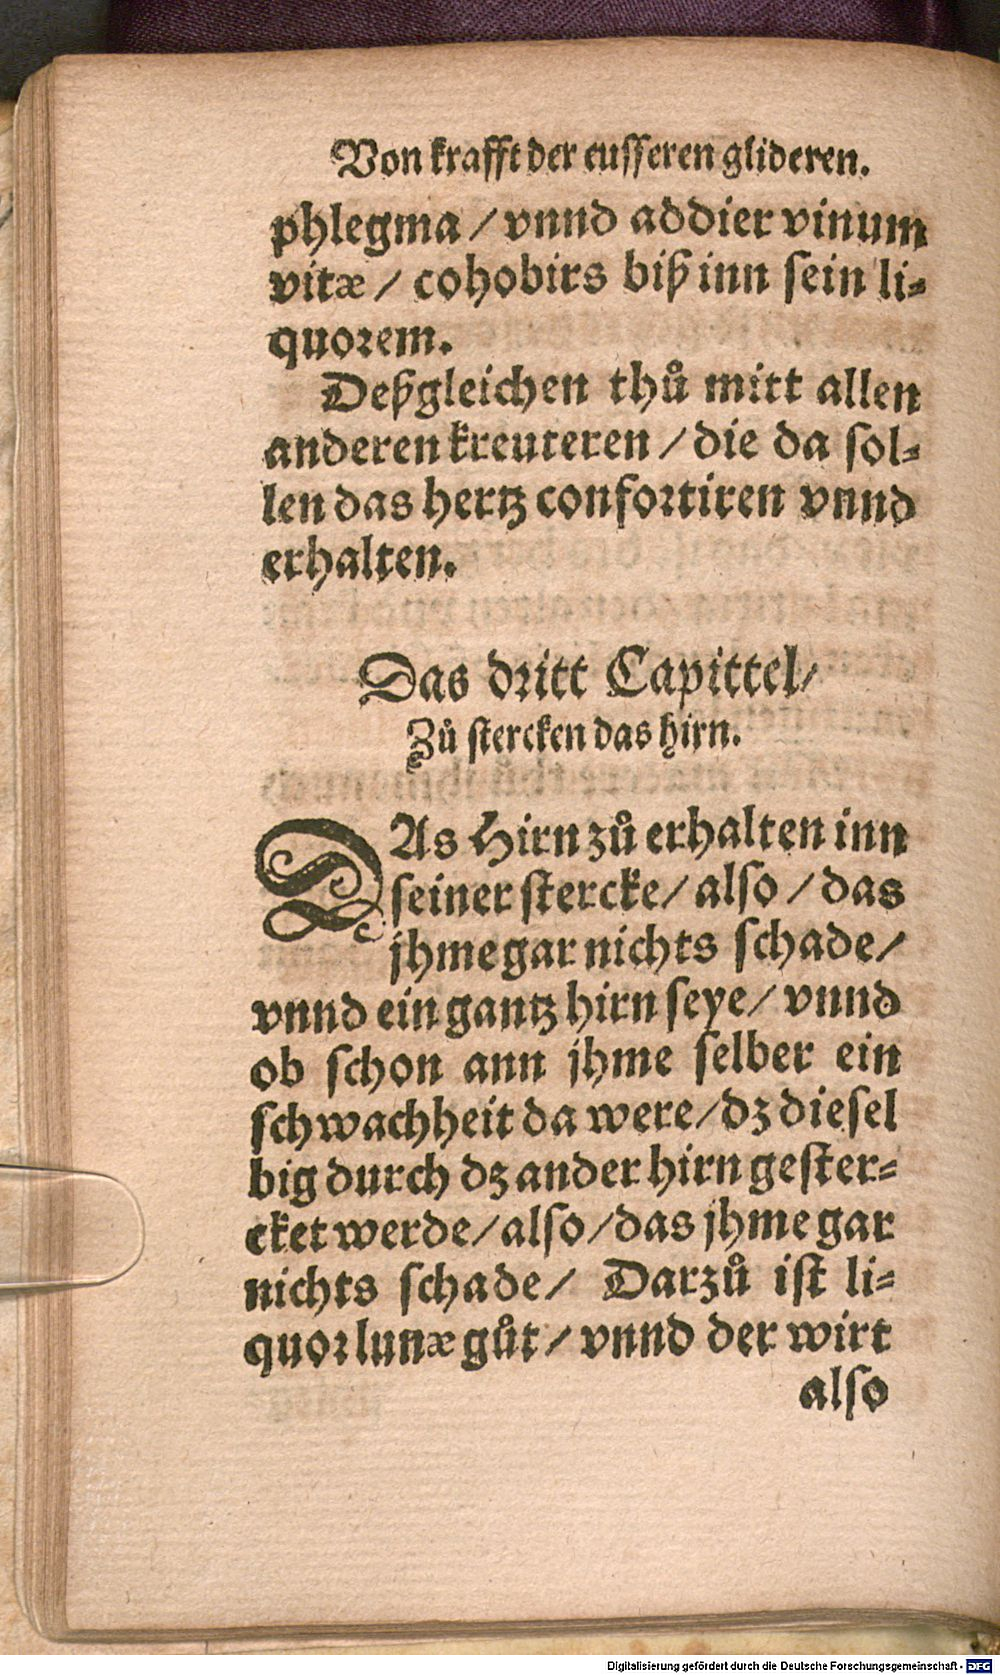 Von krafft der eusseren glideren.
phlegma / vnnd addier vinum
vitæ / cohobirs biß inn sein li-
quorem.
Deßgleichen thů mitt allen
anderen kreuteren / die da sol-
len das hertz confortiren vnnd
erhalten.
Das dritt Capittel /
Zů stercken das hirn.
DAs Hirn zů erhalten inn
seiner stercke / also / das
jhme gar nichts schade /
vnnd ein gantz hirn seye / vnnd
ob schon ann jhme selber ein
schwachheit da were / dz diesel
big durch dz ander hirn gester-
cket werde / also / das jhme gar
nichts schade / Darzů ist li-
quor lunæ gůt / vnnd der wirt
also
Digitalisierung gefördert durch die Deutsche Forschungsgemeinschaft - DFG